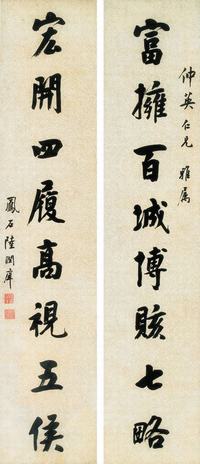 仲英仁兄 雅属
富擁百城博賅七略
宏開四履高視五侯
鳳石陸潤庠